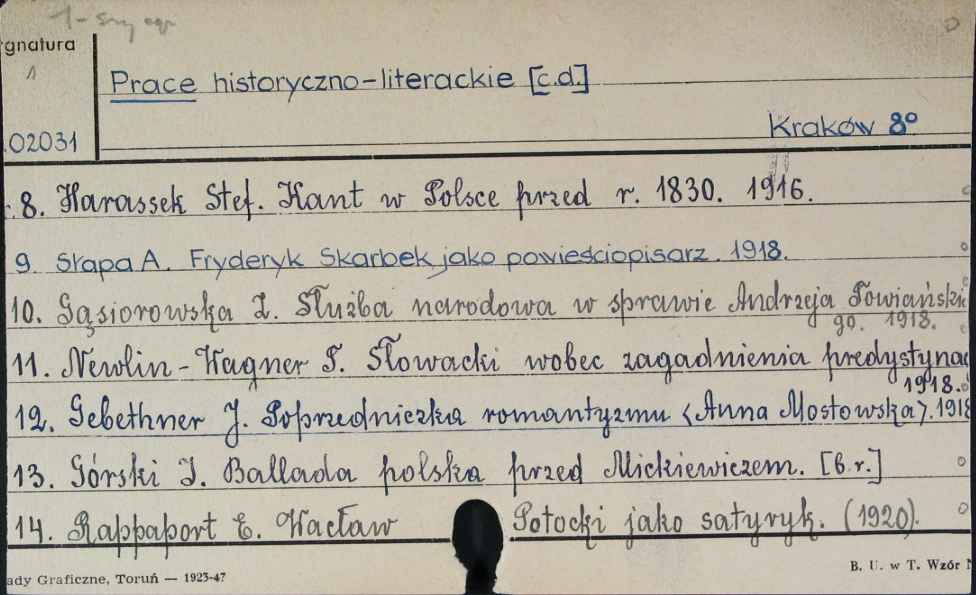 1-szy egz
gnatura
1
Prace historyczno-literackie [c.d.]
02031
Kraków 8°
8. Harassek Stef. Kant w Polsce przed r. 1830. 1916.
9. Słapa A. Fryderyk Skarbek jako powieściopisarz. 1918.
10. Gąsiorowska Z. Służba narodowa w sprawie Andrzeja Towiańskie
go. 1918.
11. Newlin-Wagner T. Słowacki wobec zagadnienia predystynac
1918.
12. Gebethner J. Poprzedniczka romantyzmu <Anna Mostowska>. 1918
13. Górski I. Ballada polska przed Mickiewiczem. [b.r.]
14. Rappaport E. Wacław Potocki jako satyryk. (1920).
ady Graficzne, Toruń — 1923-47
B. U. w T. Wzór